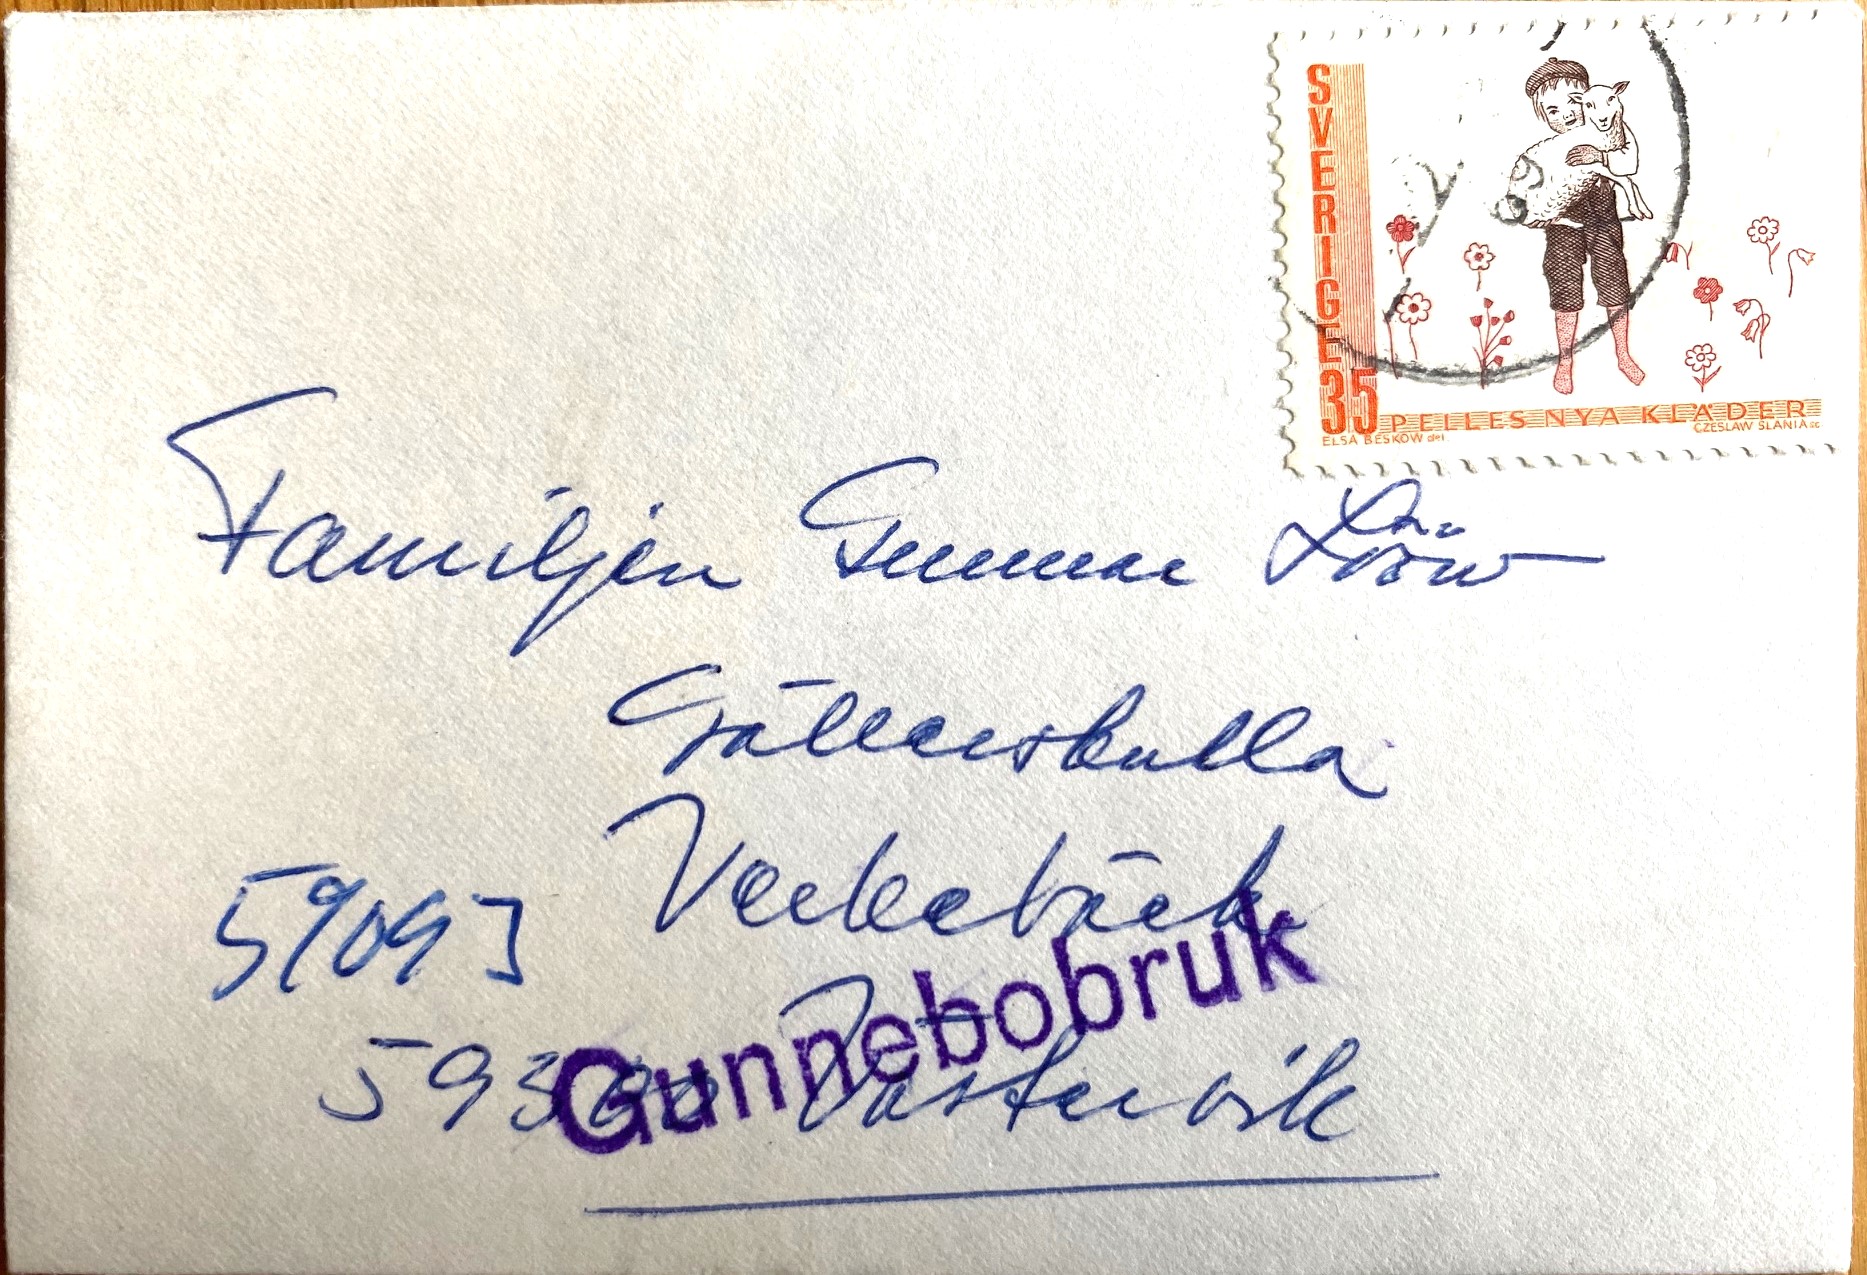 SVERIGE
35 PELLES NYA KLÄDER
ELSA BESKOW del.
CZESLAW SLANIA sc
Familjen Gunnar Lööw
Gällerskulla
Verkebäck
59093
Gunnebobruk
593 00 Västervik